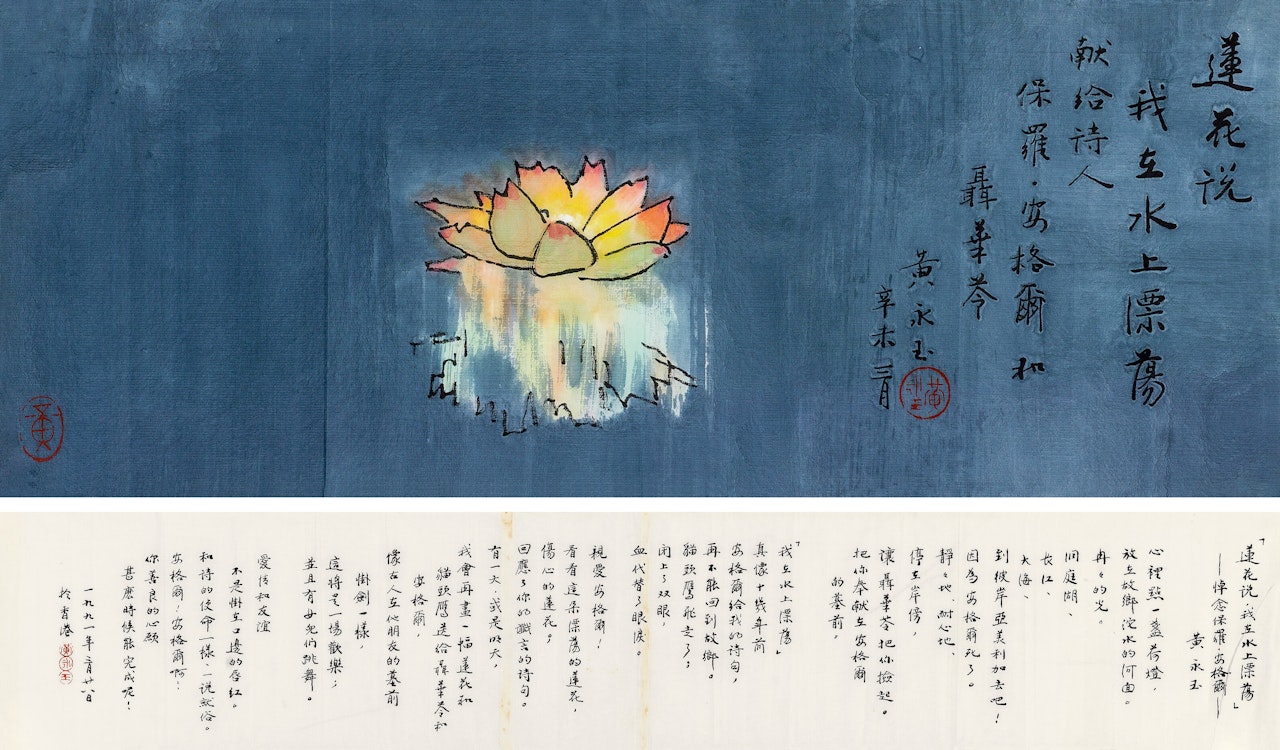 蓮花说
我在水上漂蕩
献给诗人
保羅·安格爾 和
聶華苓
黃永玉
辛未三月
黃永玉
黃
「蓮花说:我在水上漂蕩」
——悼念保羅·安格爾——
黃永玉
心裡點一盞荷燈，
放在故鄉沱水的河面。
冉々的光。
洞庭湖、
长江、
大海、
到彼岸亞美利加去吧！
因為安格爾死了。
靜々地、耐心地、
停在岸傍，
讓聶華苓把你撿起。
把你奉献在安格爾
的墓前。
「我在水上漂蕩」
真像十幾年前
安格爾给我的诗句，
再不能回到故鄉。
貓頭鷹飛走了；
闭上了双眼，
血代替了眼淚。
親爱安格爾！
看看這朵漂蕩的蓮花，
傷心的蓮花；
回應了你的讖言的诗句。
有一天，或是明天，
我會再畫一幅蓮花和
貓頭鷹送给聶華苓和
安格爾，
像古人在他朋友的墓前
掛劍一樣，
這将是一場歡樂；
並且有女兒们跳舞。
爱情和友誼
不是掛在口邊的唇红。
和诗的使命一樣、一说就俗。
安格爾！安格爾啊！
你善良的心願
甚麽時候能完成呢！
一九九一年三月廿八日
於香港
黃永玉